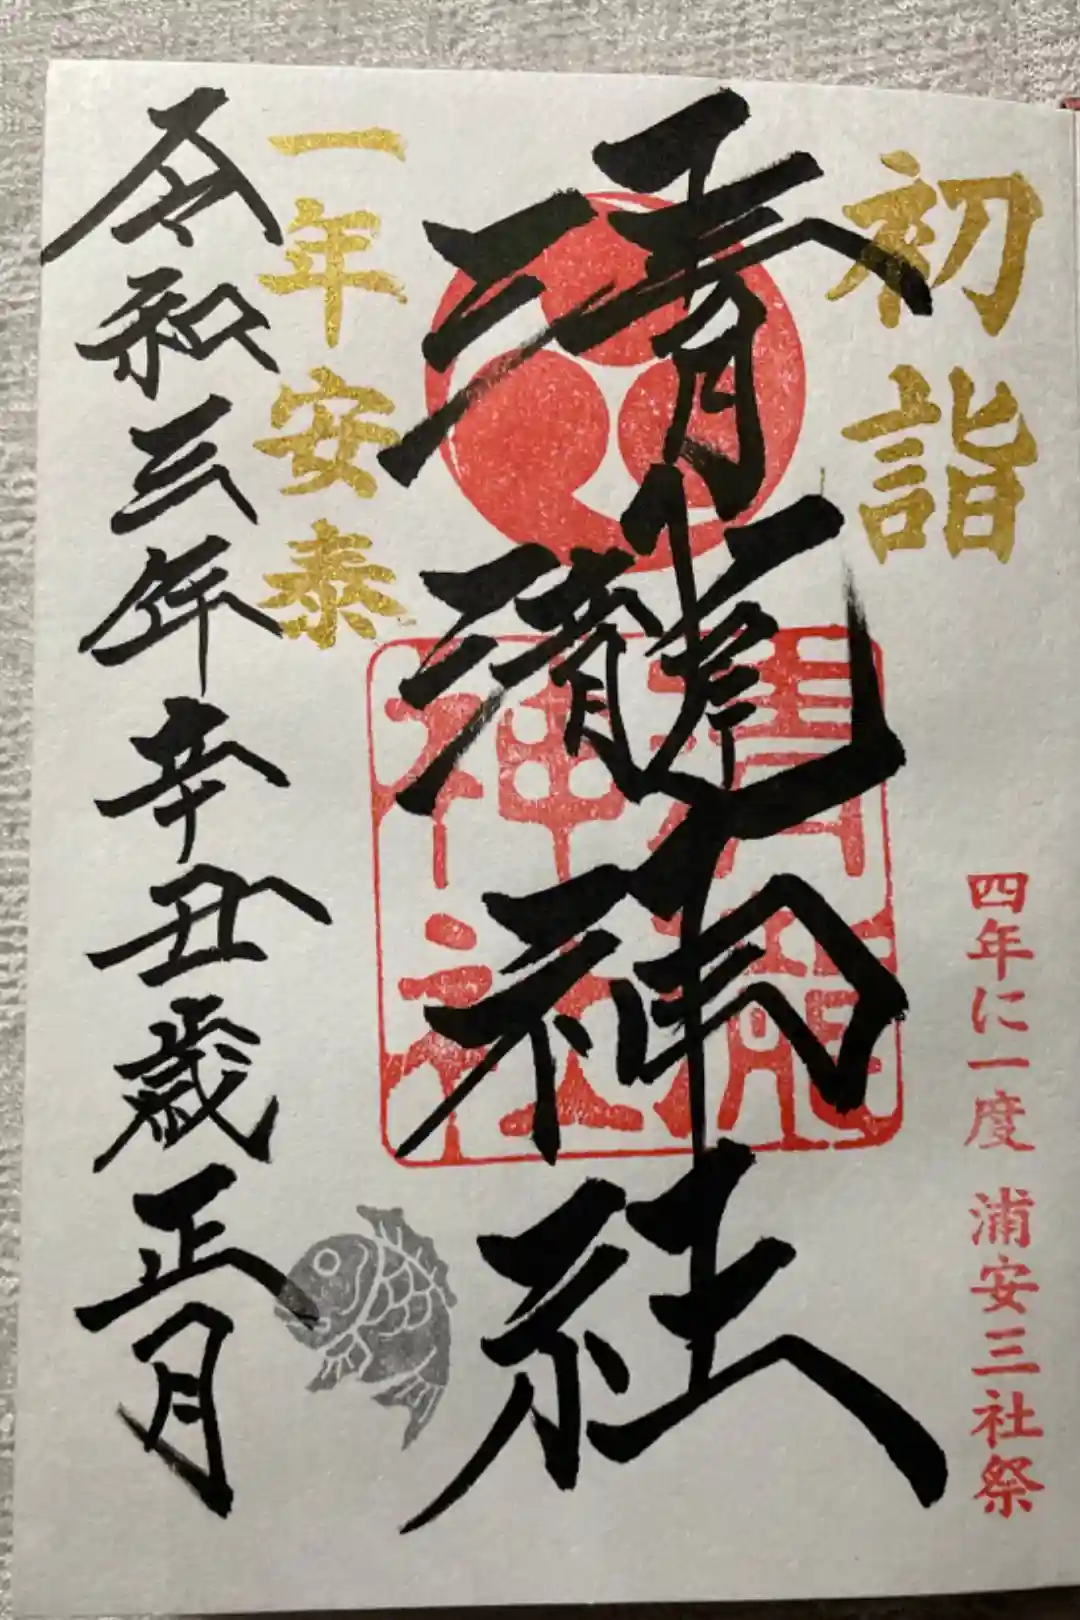 初詣
四年に一度 浦安三社祭
清瀧神社
清瀧神社
一年安泰
令和三年辛丑歳正月